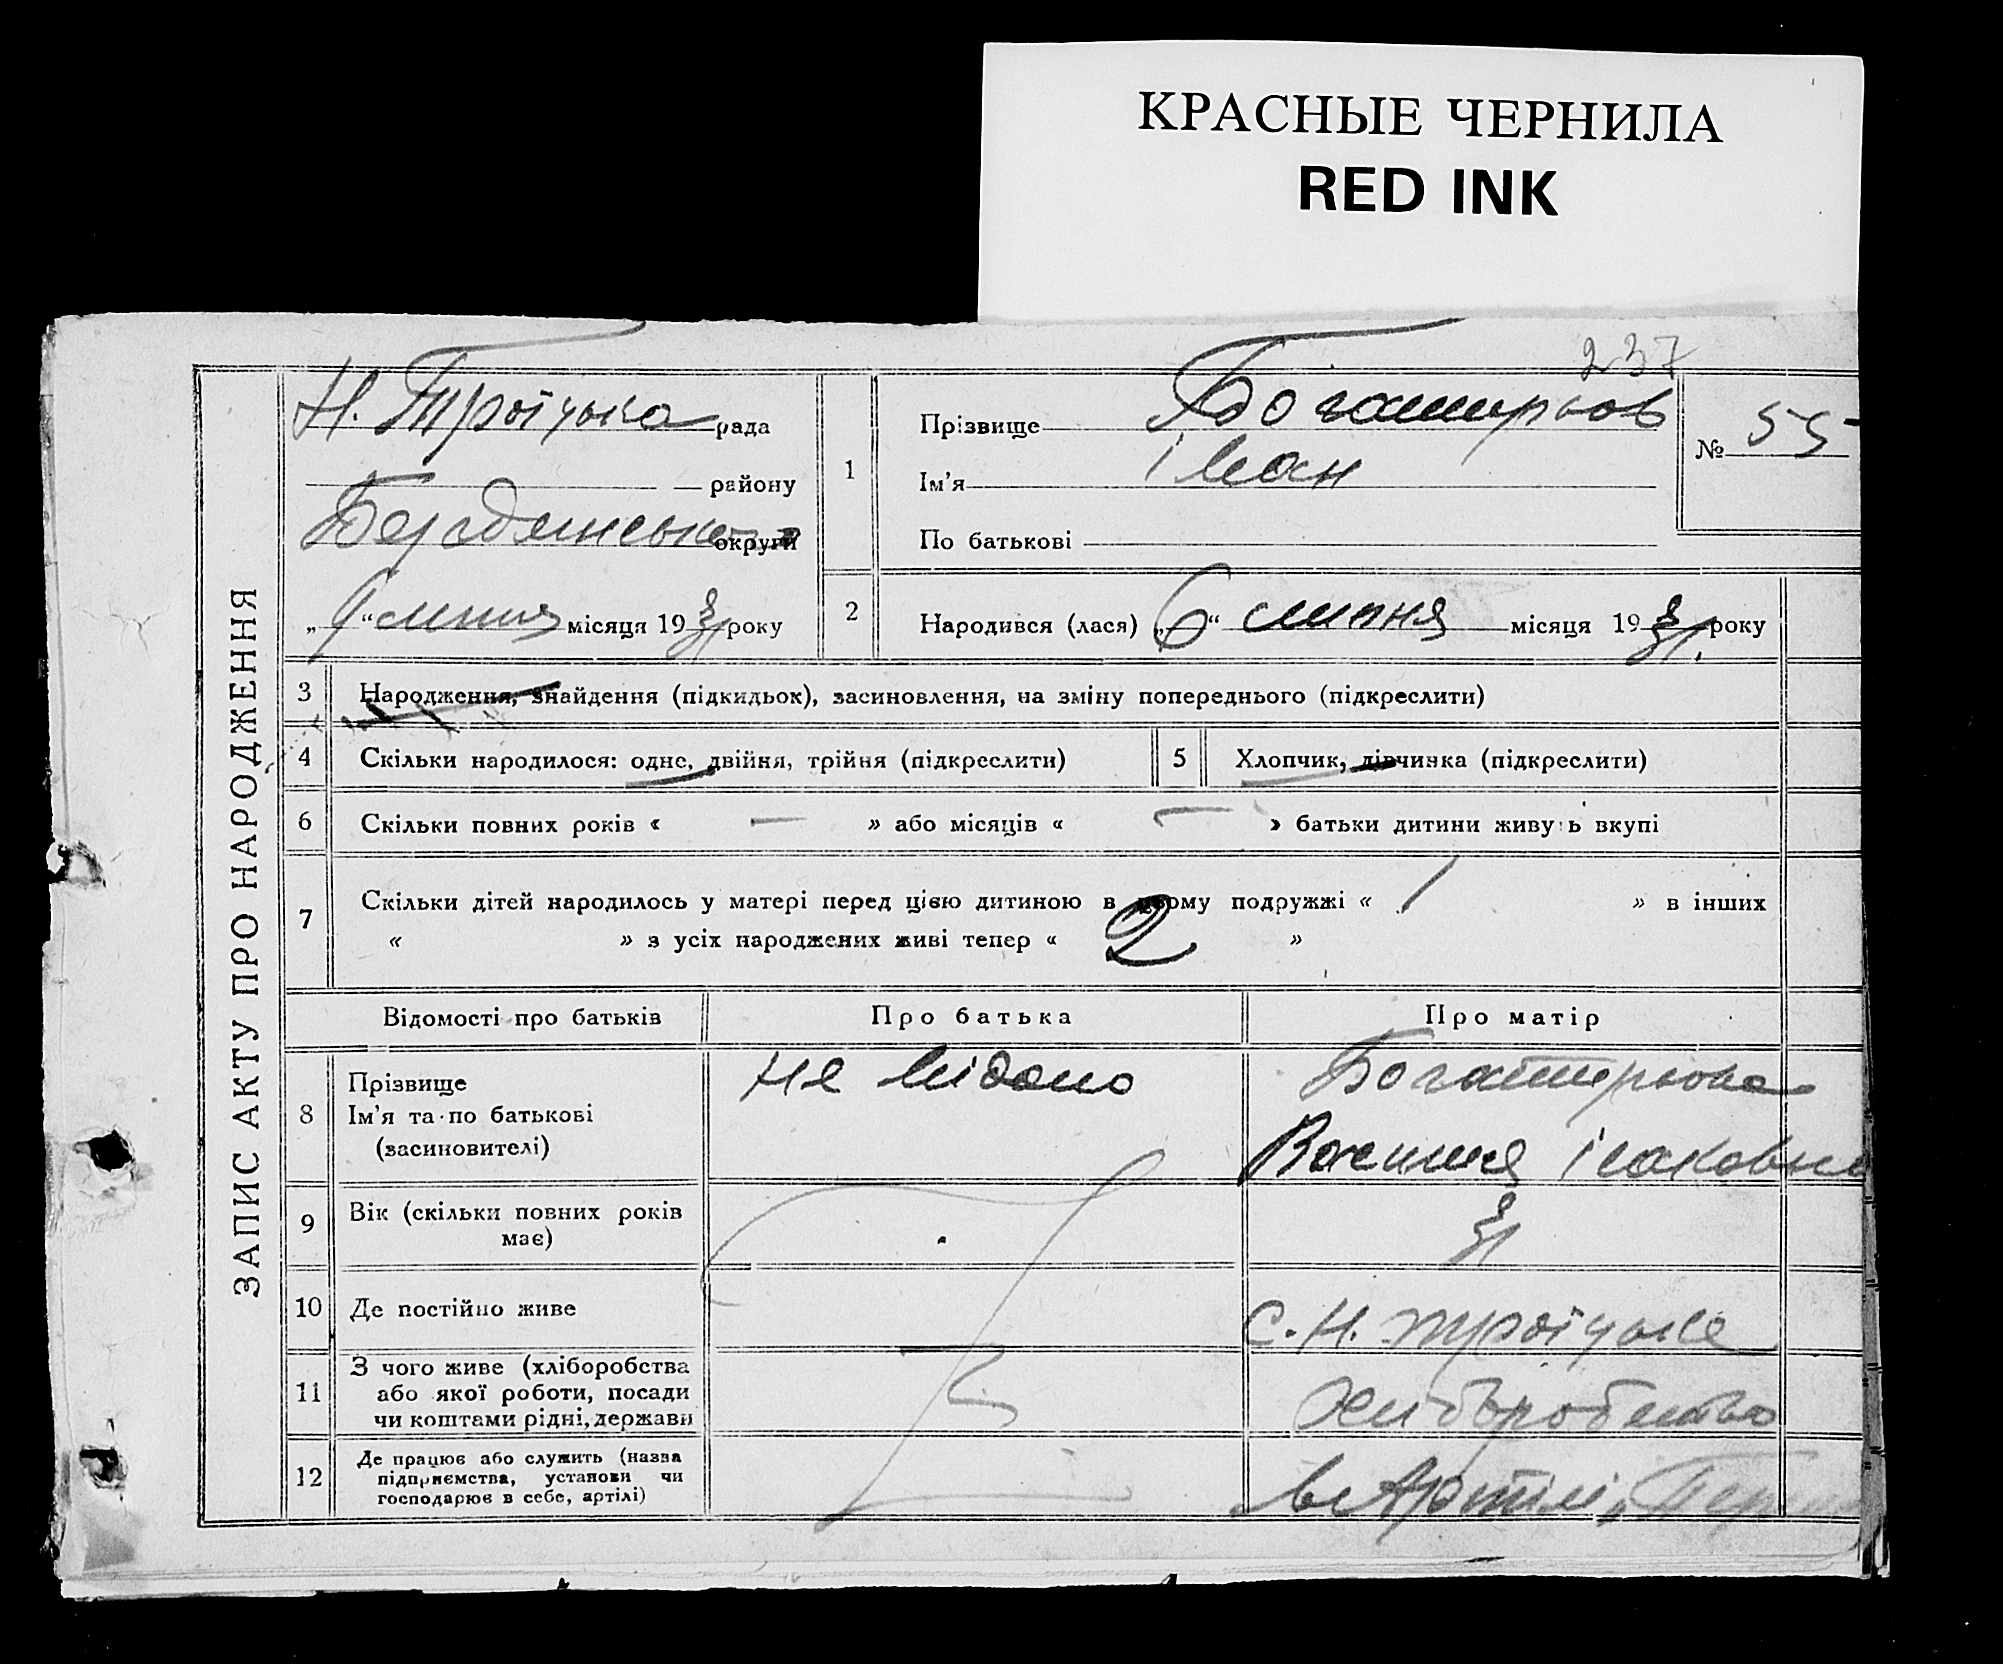 КРАСНЫЕ ЧЕРНИЛА
RED INK
237
ЗАПИС АКТУ ПРО НАРОДЖЕННЯ
Н. Троїцька рада
району
Бердянсько округи
місяця 19 31 року
1
Прізвище Богатирьов
Ім'я Іван
По батькові
№ 55
2
Народився (лася) „6“ липня місяця 19 31. року
3 Народження, знайдення (підкидьок), засиновлення, на зміну попереднього (підкреслити)
4 Скільки народилося: одне, двійня, трійня (підкреслити) 5 Хлопчик, дівчинка (підкреслити)
6 Скільки повних років « — » або місяців « — » батьки дитини живуть вкупі
7 Скільки дітей народилось у матері перед цією дитиною в цьому подружжі « 1 » в інших
« » з усіх народжених живі тепер « 2 »
Відомості про батьків Про батька Про матір
8 Прізвище
Ім'я та по батькові
(засиновителі)
не відомо
Богатирьова
9 Вік (скільки повних років
має)
31
10 Де постійно живе
с. Н. Троїцьке
11 З чого живе (хліборобства
або якої роботи, посади
чи коштами рідні, держави
12 Де працює або служить (назва
підприємства, установи чи
господарює в себе, артілі)
в Артілі